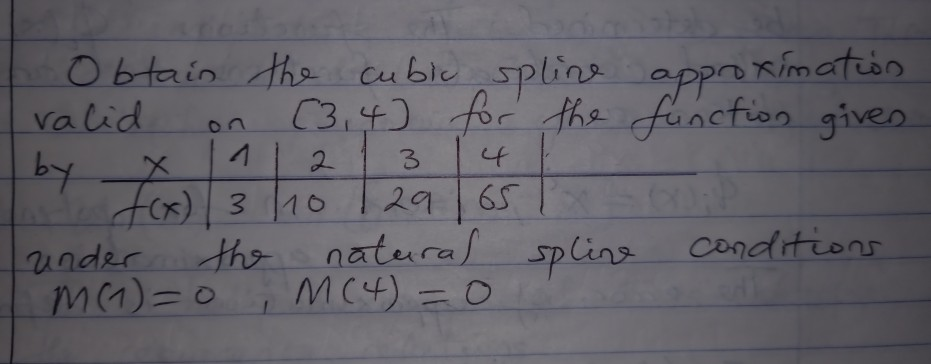 Obtain the cubic spline approximation
valid on [3,4] for the function given
by x | 1 | 2 | 3 | 4 |
f(x) | 3 | 10 | 29 | 65 |
under the natural spline conditions
M(1)=0, M(4)=0